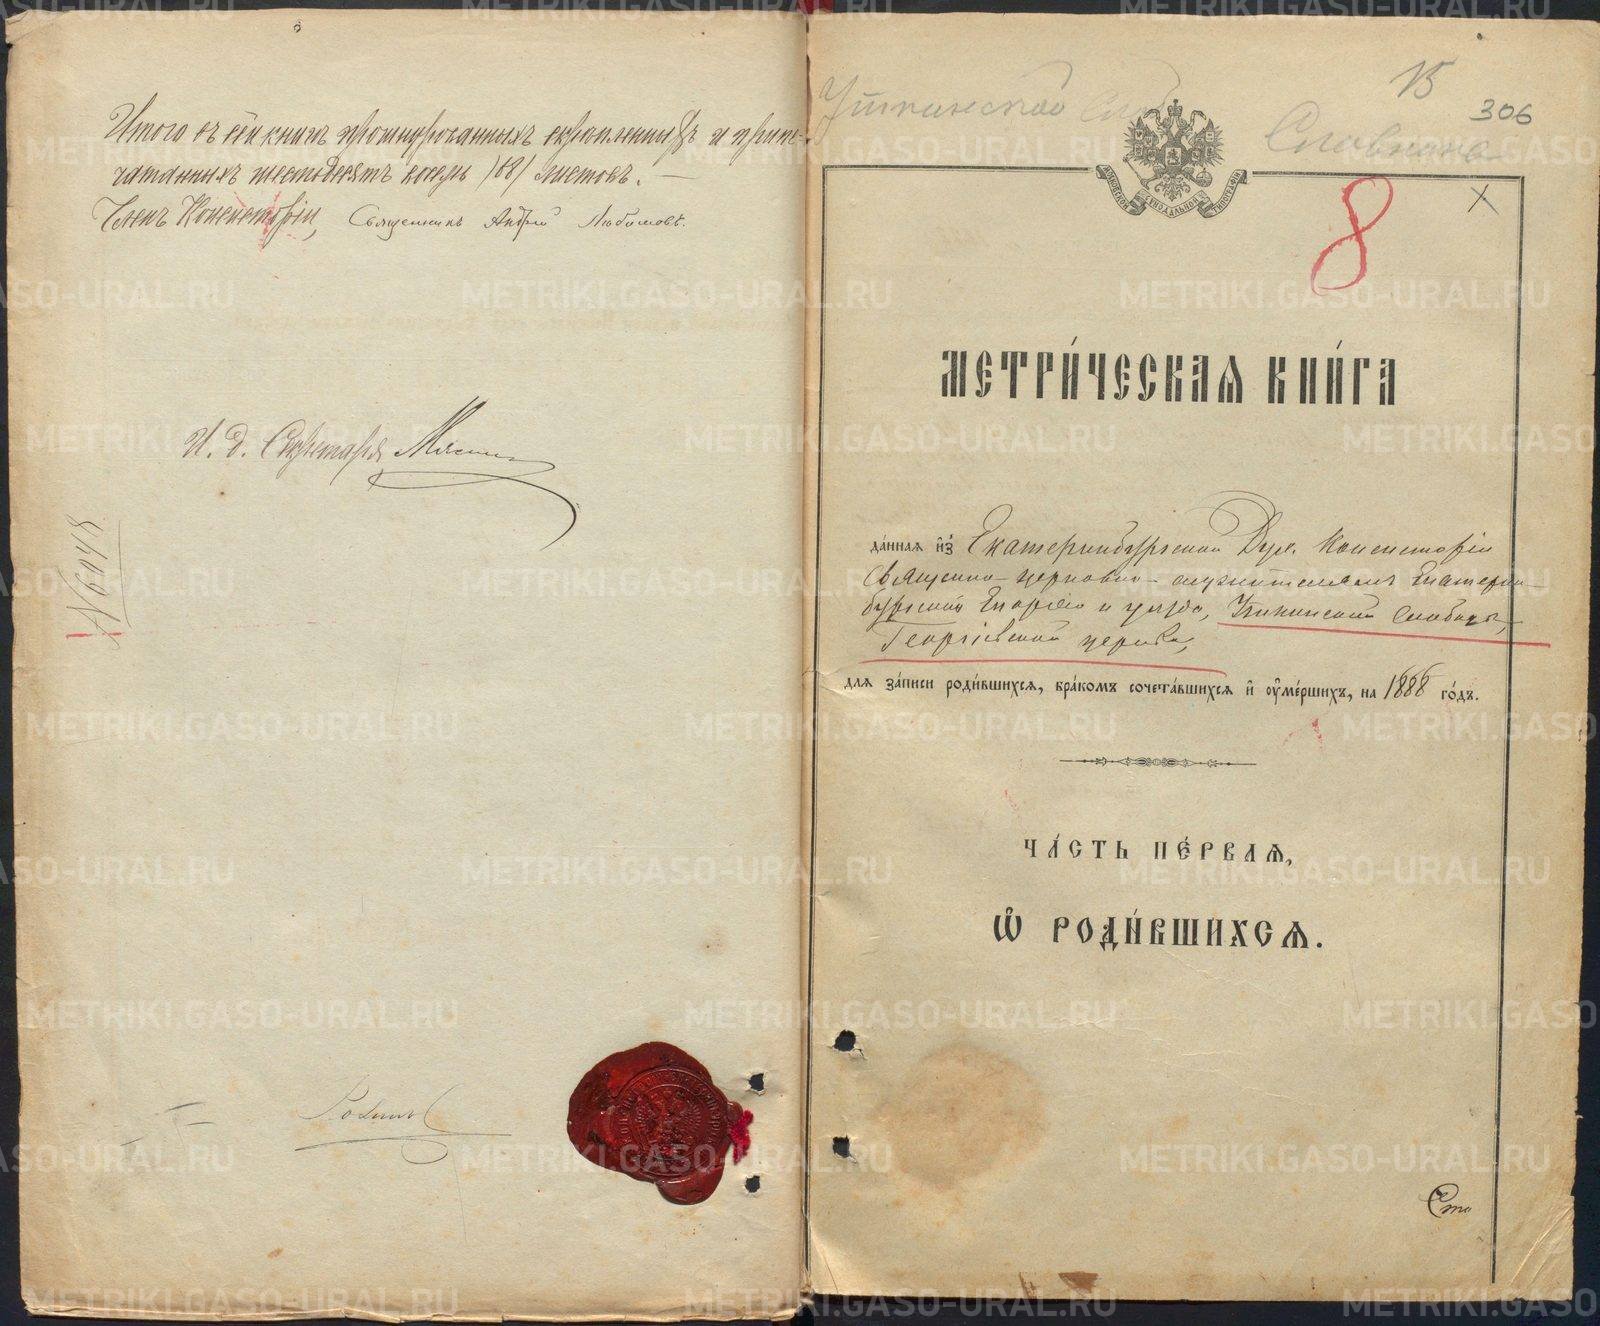 Итого въ сей книгѣ пронумерованныхъ скрѣпленныхъ и припе-
чатанныхъ шестьдесятъ восемь /68/ листовъ. —
Членъ Консисторіи, Священникъ Андрей Любимовъ.
И. д. Секретаря
№ 6048
15
306
Уткинской Слоб
8
МОСКОВСКОЙ СѴНОДАЛЬНОЙ ТИПОГРАФІИ
МЕТРИ́ЧЕСКАѦ КНИ́ГА
да́ннаѧ и҆з̾ Екатеринбургской Дух. Консисторіи
Священно-церковно-служителямъ Екатерин-
бургской Епархіи и уѣзда, Уткинской Слободы,
Георгіевской церкви,
длѧ за́писи роди́вшихсѧ, бра́комъ сочета́вшихсѧ и҆ ᲂу҆ме́ршихъ, на 1888 го́дъ.
ЧА́СТЬ ПЕ́РВАѦ,
Ѽ РОДИ́ВШИХСѦ.
Сто
METRIKI.GASO-URAL.RU